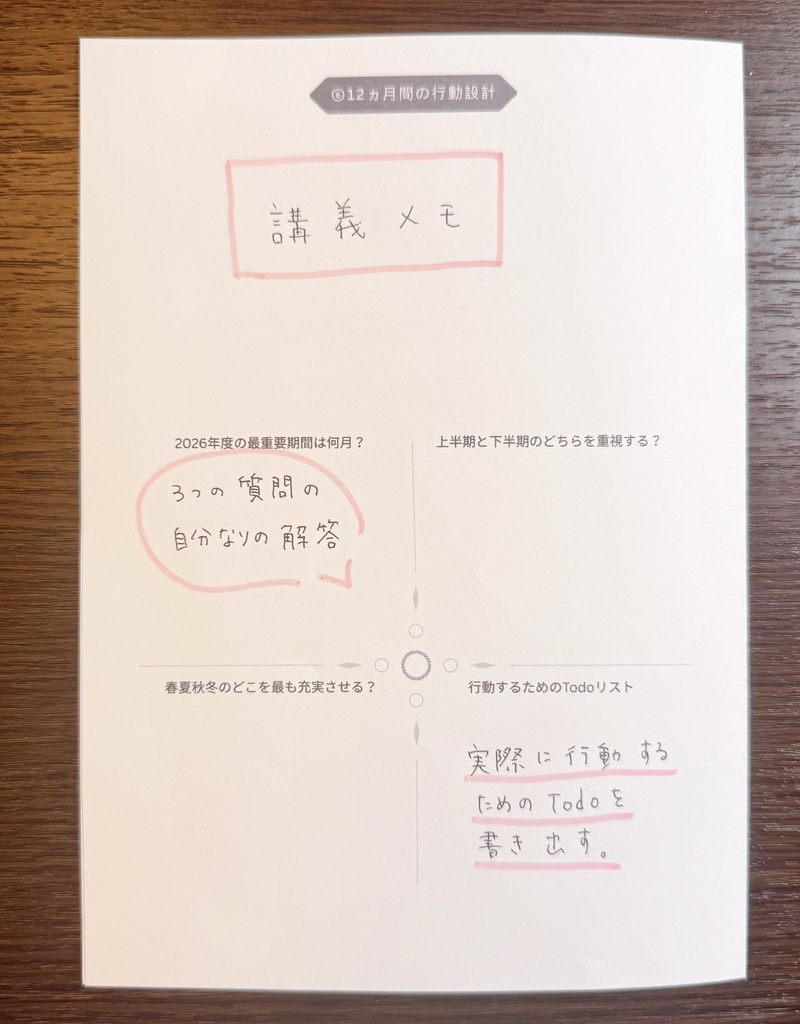 ⑥12ヵ月間の行動設計
講義メモ
2026年度の最重要期間は何月？
上半期と下半期のどちらを重視する？
3つの質問の
自分なりの解答
春夏秋冬のどこを最も充実させる？
行動するためのTodoリスト
実際に行動する
ためのTodoを
書き出す。